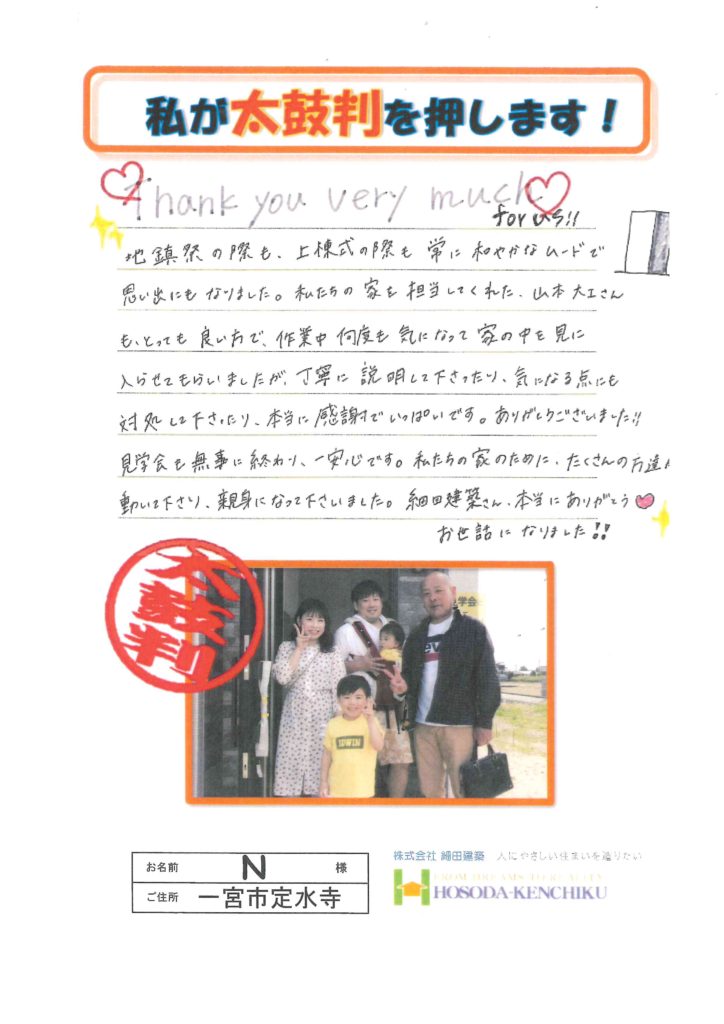 私が太鼓判を押します！
Thank you very much
for us!!
地鎮祭の際も、上棟式の際も 常に 和やかなムードで
思い出にもなりました。私たちの家を担当してくれた、山本大工さん
も、とっても良い方で、作業中 何度も気になって家の中を見に
入らせてもらいましたが、丁寧に説明して下さったり、気になる点にも
対処して下さったり、本当に感謝でいっぱいです。ありがとうございました!!
見学会も無事に終わり、一安心です。私たちの家のために、たくさんの方達が
動いて下さり、親身になって下さいました。細田建築さん、本当にありがとう
お世話になりました!!
太鼓判
学会
EDWIN
お名前 N 様
ご住所 一宮市定水寺
株式会社 細田建築 人にやさしい住まいを造りたい
FROM DREAMS TO REALITY
HOSODA-KENCHIKU